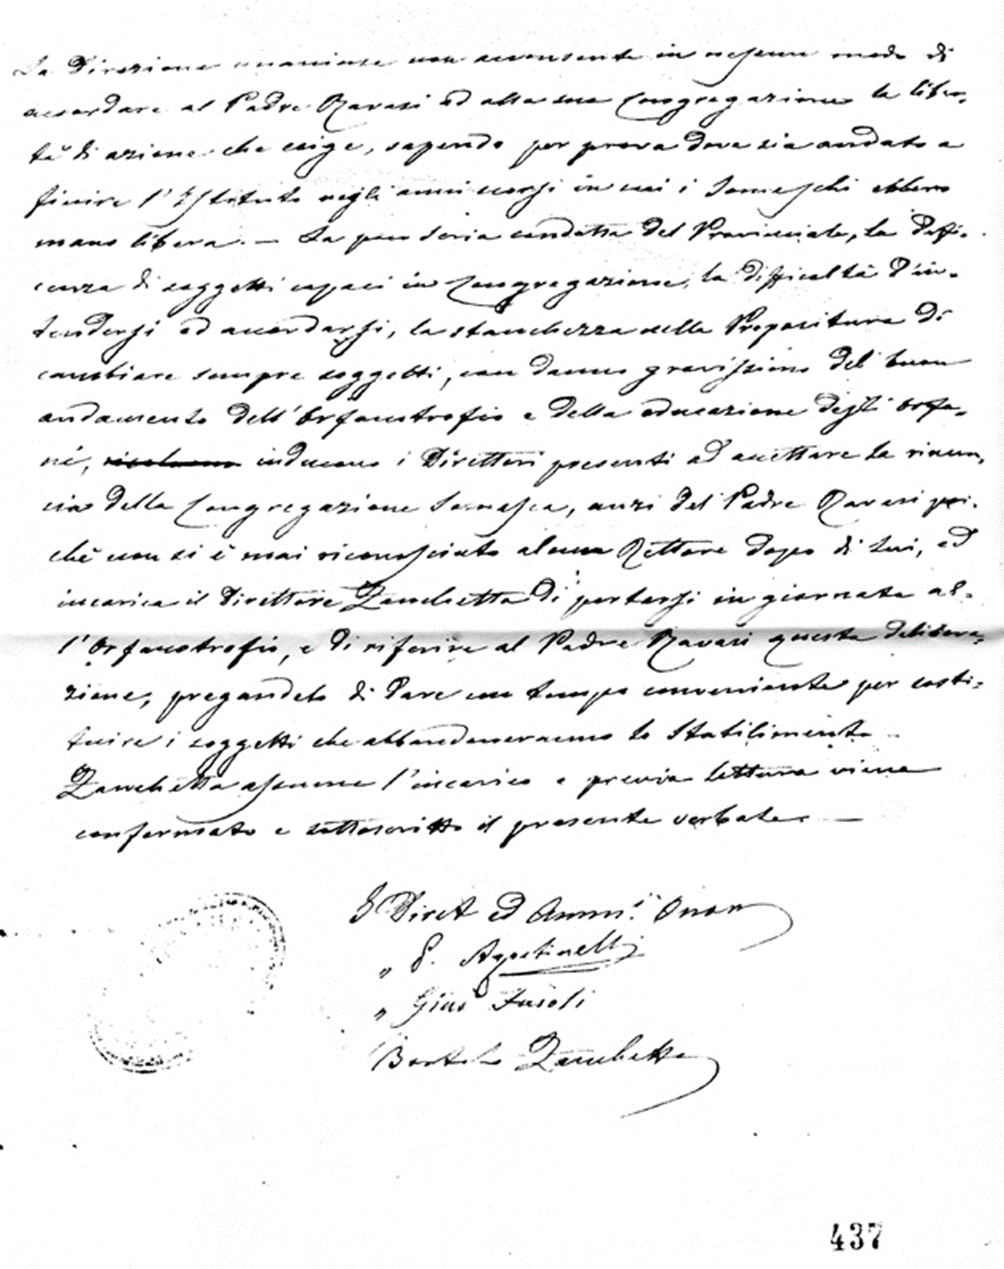 La Direzione unanime non acconsente in nessun modo di
accordare al Padre Ravasi ed alla sua Congregazione la liber-
tà di azione che esige, sapendo per prova dove sia andato a
finire l'Istituto negli anni scorsi in cui i Somaschi ebbero
mano libera. — La poco seria condotta del Provinciale, la defi-
cenza di soggetti capaci in Congregazione, la difficoltà d'in-
tendersi ed accordarsi, la stanchezza nella Prepositura di
cambiare sempre soggetti, con danno gravissimo del buon
andamento dell'Orfanotrofio e della educazione degli orfa-
ni, inducono i Direttori presenti ad accettare la rinun-
cia della Congregazione Somasca, anzi del Padre Ravasi poi-
chè non si è mai riconosciuto alcun Rettore dopo di lui, ed
incarica il Direttore Zanchetta di portarsi in giornata al-
l'Orfanotrofio, e di riferire al Padre Ravasi questa delibera-
zione, pregandolo di dare un tempo conveniente per costi-
tuire i soggetti che abbandoneranno lo Stabilimento.
Zanchetta assume l'incarico e previa lettura viene
confermato e sottoscritto il presente verbale. —
I Dirett ed Ammi.
" G. Agostinelli
" Gius Fusoli
Bortolo Zanchetta
437